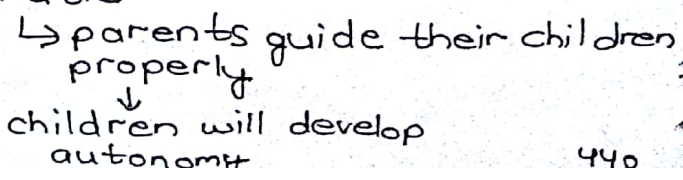 ↳ parents guide their children
properly
↓
children will develop
autonomy 440